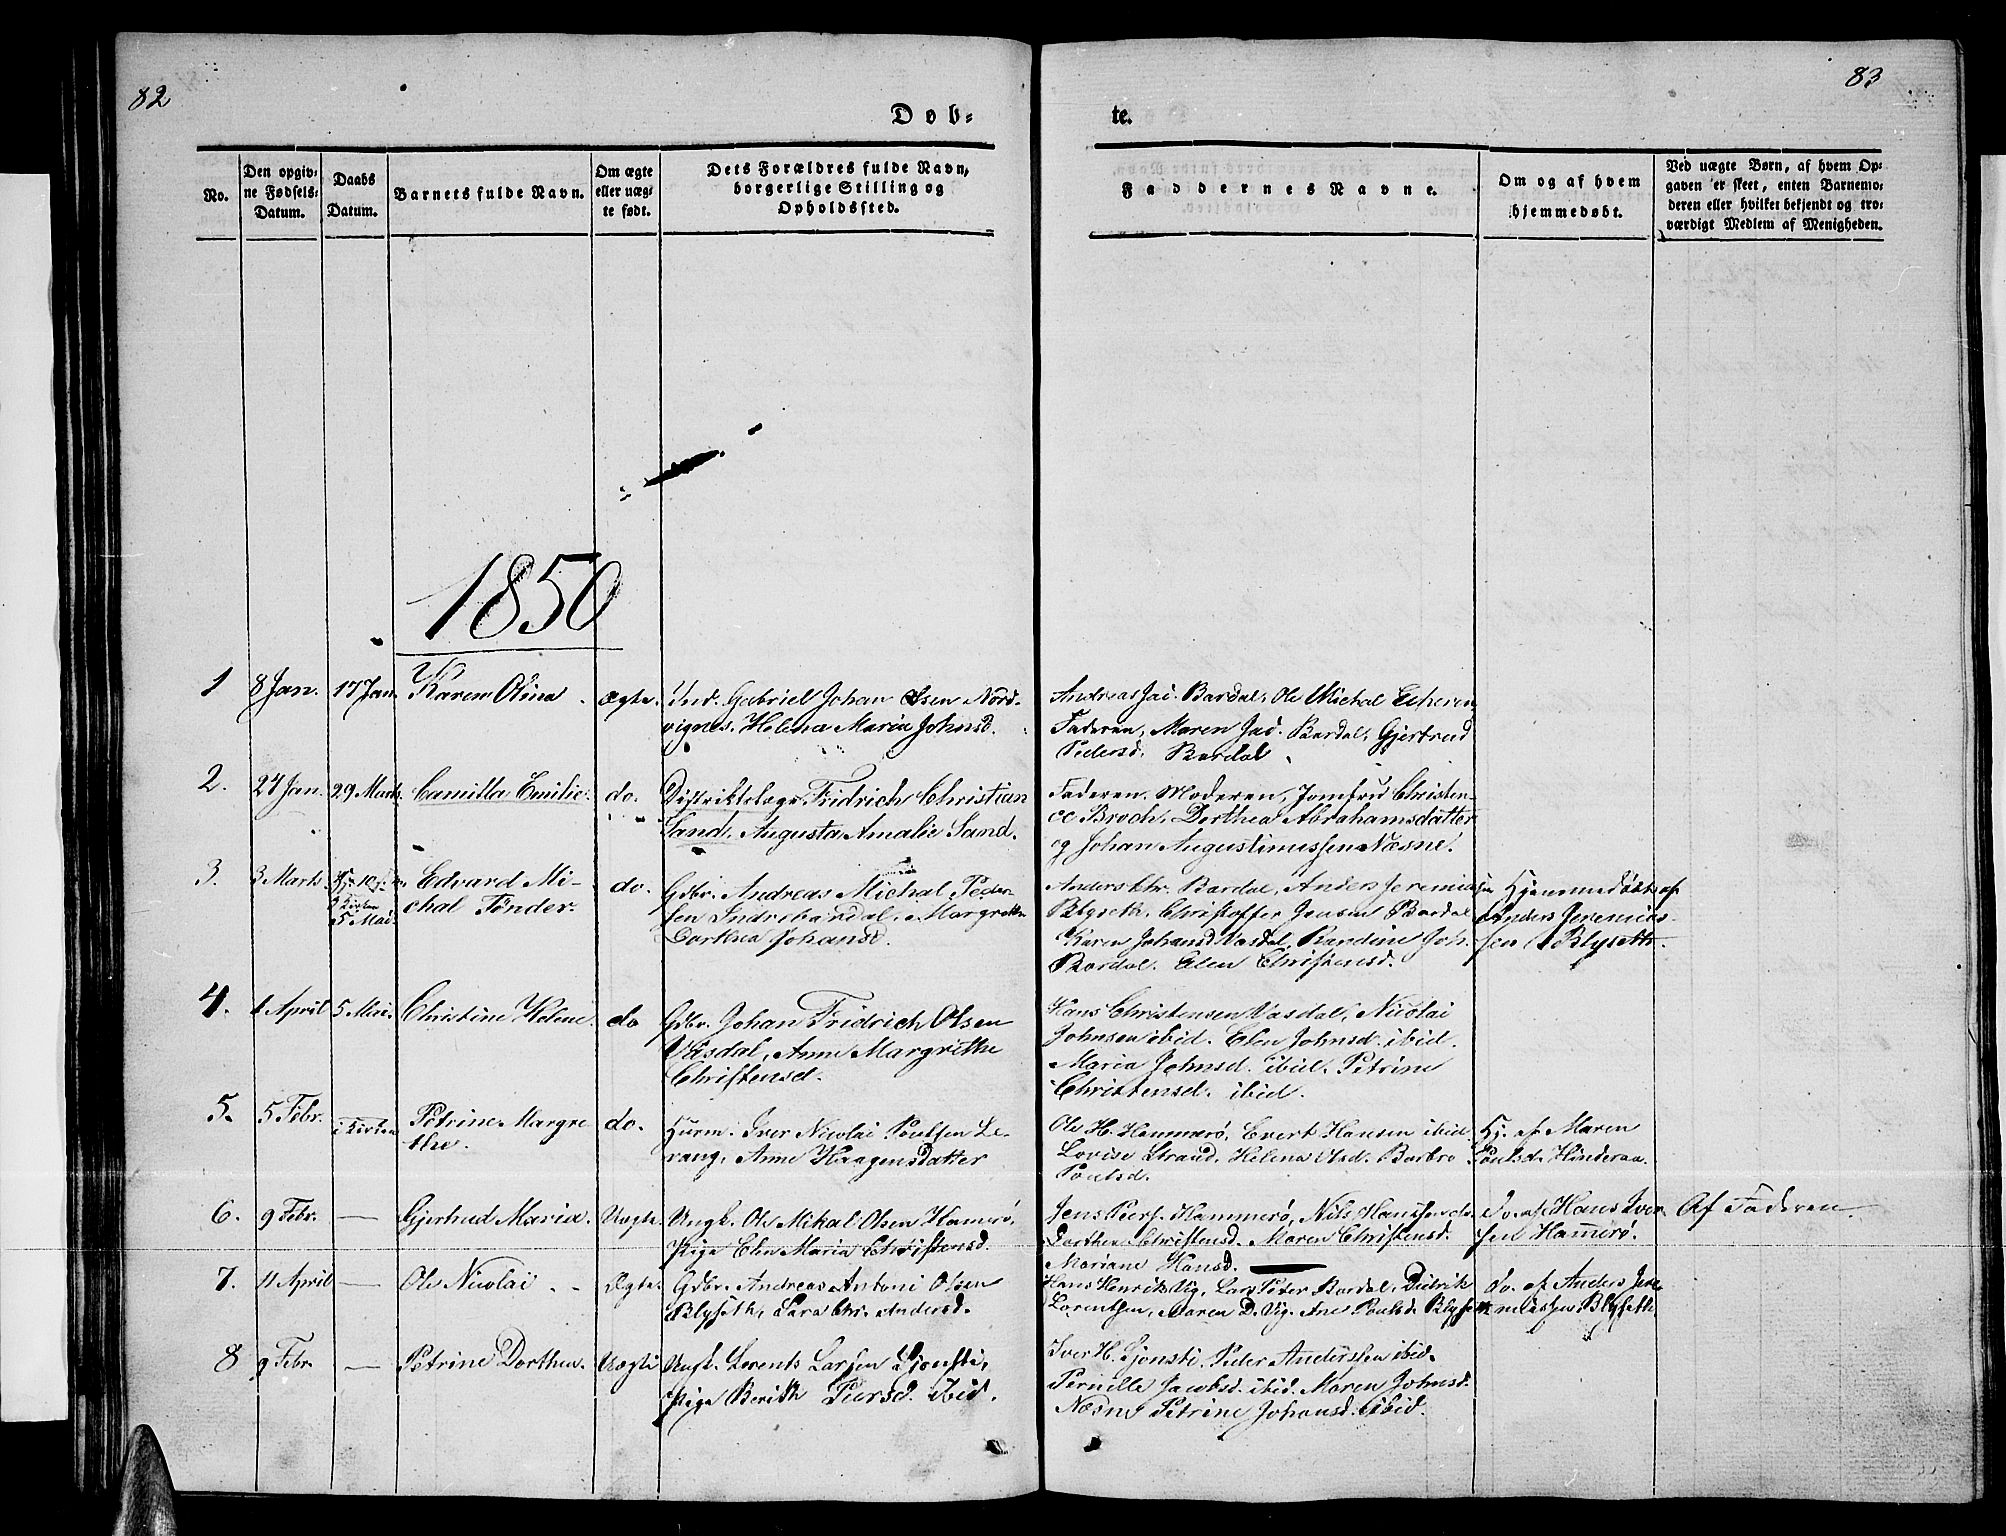 82
83
Døb-
te.
No.
Den opgiv-
ne Fødsels-
Datum.
Daabs
Datum.
Barnets fulde Navn.
Om ægte
eller uæg-
te født.
Dets Forældres fulde Navn,
borgerlige Stilling og
Opholdssted.
Faddernes Navne.
Om og af hvem
hjemmedøbt.
Ved uægte Børn, af hvem Op-
gaven er skeet, enten Barnemo-
deren eller hvilket bekjendt og tro-
værdigt Medlem af Menigheden.
1850
1 8 Jan. 17 Jan. Karen Olina. ægte. Ind. Gabriel Johan Olsen Nord-
vignes. Helena Maria Johnsd.
Andreas Jac. Bardal, Ole Michal
Faderen, Maren Jac. Bardal, Gjertrud
Pedersd. Bardal.
2. 24 Jan. 29 Marts. Camilla Emilie. do. Distriktslæge Fridrich Christian
Sand, Augusta Amalie Sand.
Faderen. Moderen, Jomfru Christen-
ce Broch, Dorthea Abrahamsdatter
og Johan Augustinussen Næsne.
3. 3 Marts. i Kirken 5 Mai. Edvard Mi-
chal Tønder. do. Gdbr. Andreas Michal Peder-
sen Indrebardal, Margrethe
Dorthea Johansd.
Anders Chr. Bardal, Anders Jeremiassen
Blyseth, Christoffer Jensen Bardal
Karen Johansd. Vasdal, Joh.
Bardal. Elen Christensd.
Hjemmedøbt af
Anders Jeremias-
sen Blyseth.
4. 1 April 5 Mai. Christine Helene. do Gdbr. Johan Fridrich Olsen
Vasdal, Anne Margrethe
Christensd.
Hans Christensen Vasdal, Nicolai
Johnsen ibid. Elen Johnsd. ibid.
Maria Johnsd. ibid. Petrine
Christensd. ibid.
5. 5 Febr. i Kirken Petrine Margre
the. do. Huusm. Iver Nicolai Poulsen Le-
rang, Anne Haagensdatter
Ole H. Hammerø, Evert Hansen ibid.
Lovise Strand, Helena Olsd. Barbro
Poulsd.
Hj. af Maren
Poulsd. Hinderaa.
6. 9 Febr. — Gjertrud Maria. Uægte. Ungk. Ole Mikal Olsen Hamerø,
Pige Elen Maria Christensd.
Jens Peers. Hammerø, Nils Hansen do.
Dorthea Christensd. Maren Christensd.
Mariane Hansd.
do. af Hans Iver-
sen Hamerø.
Af Faderen.
7. 11 April — Ole Nicolai Ægte. Gdbr. Andreas Antoni Olsen
Blyseth, Sara Chr. Andersd.
Hans Henrik Vig, Lars Peter Bardal, Didrik
Lorentsen, Maren D. Vig. Ane Poulsd. Blyseth
do. af Anders Jere
miassen Blyseth.
8 9 Febr. — Petrine Dorthea. Uægte Ungk. Lorents Larsen Sjonsti,
Pige Berith Peersd. ibid.
Iver H. Sjonsti, Peder Andersen ibid.
Pernille Jacobsd. ibid. Maren Johnsd.
Næsne Petrine Johansd. ibid.